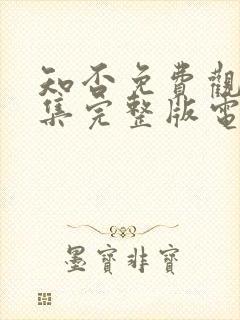 知否免費觀
集完整版電
墨寶非寶